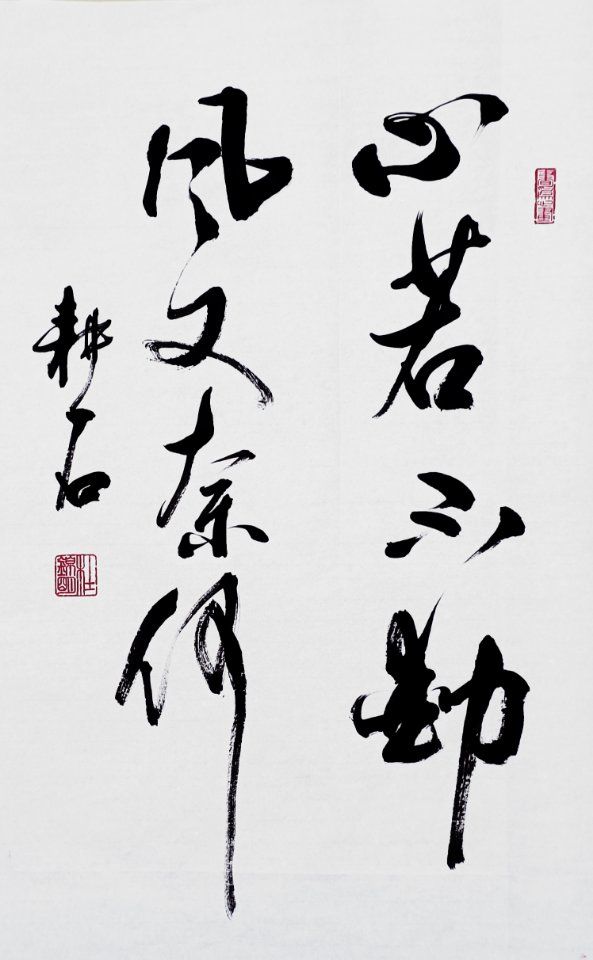 心若不動
風又奈何
耕石